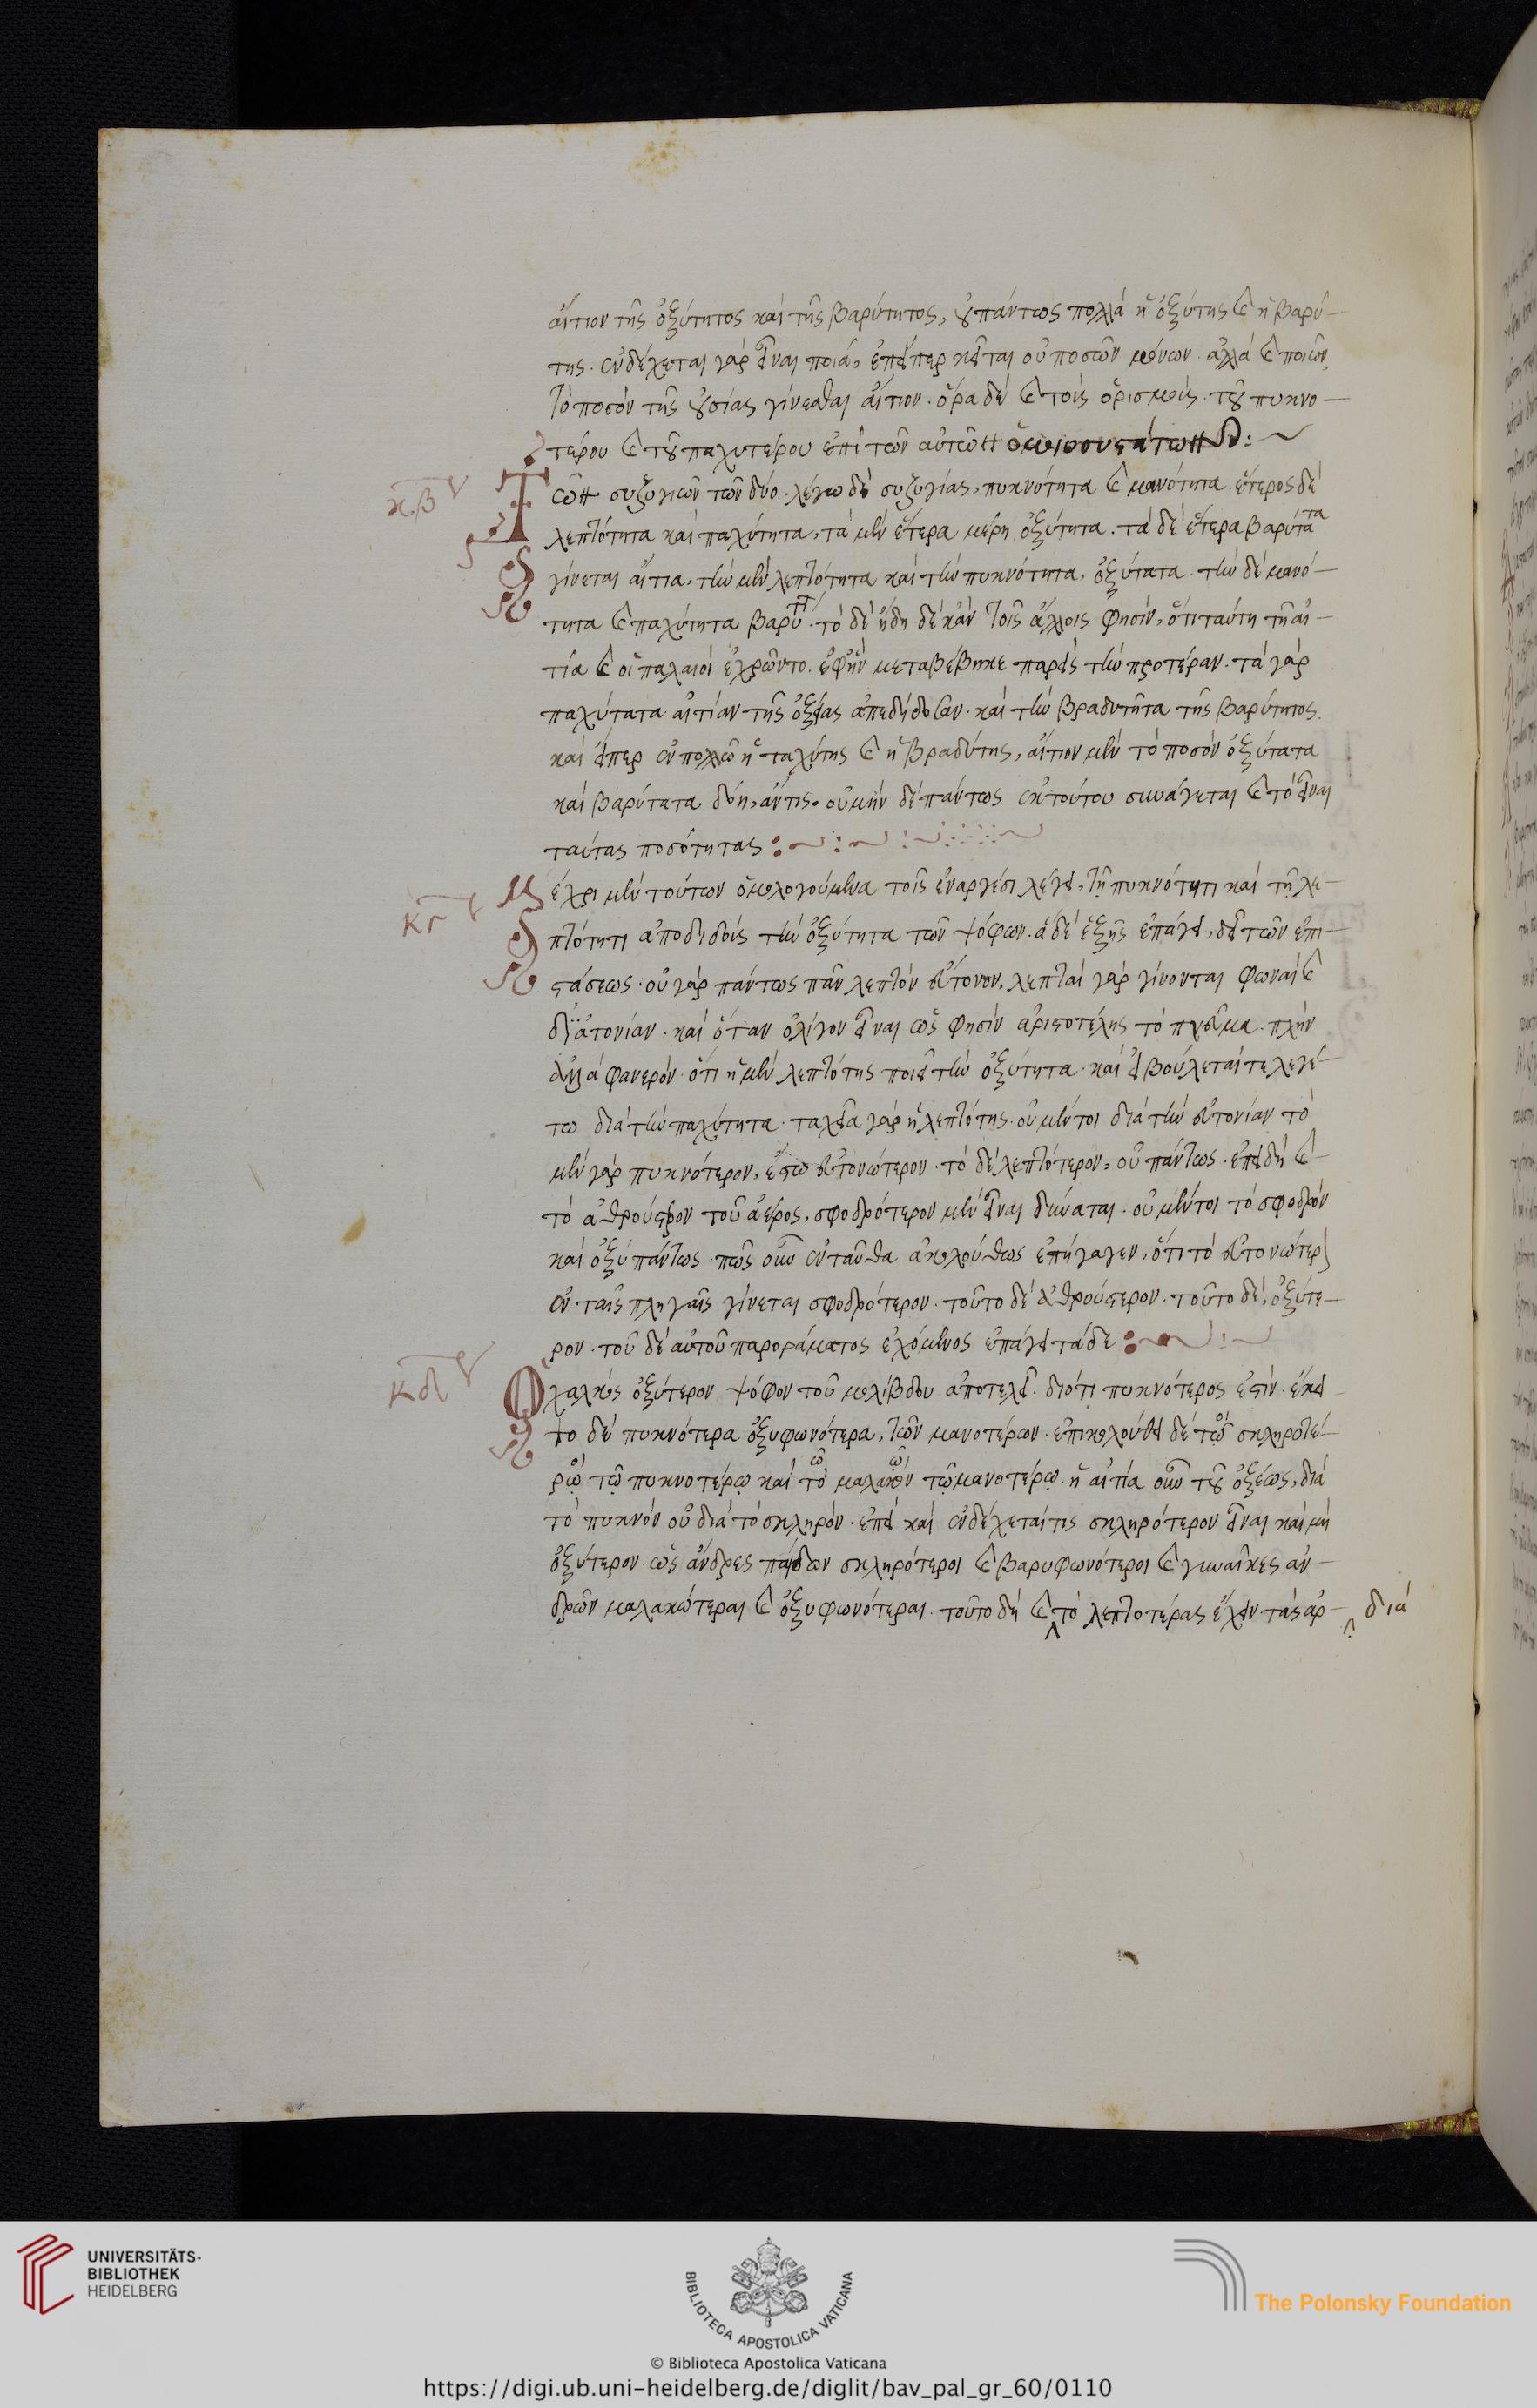 αἴτιον τῆς ὀξύτητος καὶ τῆς βαρύτητος, οὐ πάντως πολλὰ ἡ ὀξύτης καὶ ἡ βαρύ-
της. ἐνδέχεται γὰρ εἶναι ποιὰ, ἐπείπερ κεῖται οὐ ποσῶν μόνων. ἀλλὰ καὶ ποιῶν
τὸ ποσὸν τῆς οὐσίας γίνεσθαι αἴτιον. ὅρα δὲ καὶ τοῖς ὁρισμοῖς. τοῦ πυκνο-
τέρου καὶ τοῦ παχυτέρου ἐπὶ τῶν αὐτῶν ὁμοιουστάτων
κβ Τῶν συζυγιῶν τῶν δύο. λέγω δὲ συζυγίας, πυκνότητα καὶ μανότητα. ἕτερος δὲ
λεπτότητα καὶ παχύτητα, τὰ μὲν ἕτερα μέρη ὀξύτητα. τὰ δὲ ἕτερα βαρύτατα
γίνεται αἴτια, τὴν μὲν λεπτότητα καὶ τὴν πυκνότητα, ὀξύτατα. τὴν δὲ μανό-
τητα καὶ παχύτητα βαρύτ. τὸ δὲ ἤδη δὲ κἀν τοῖς ἄλλοις φησὶν, ὅτι ταύτη τῇ αἰ-
τία καὶ οἱ παλαιοὶ ἐχρῶντο. ἐφ' ἣν μεταβέβηκε παρεὶς τὴν προτέραν. τὰ γὰρ
παχύτατα αἰτίαν τῆς ὀξείας ἀπεδίδοσαν. καὶ τὴν βραδυτῆτα τῆς βαρύτητος.
καὶ εἴπερ ἐν πολλῶ ἡ ταχύτης καὶ ἡ βραδύτης, αἴτιον μὲν τὸ ποσὸν ὀξύτατα
καὶ βαρύτατα δόη, ἄν τις. οὐ μὴν δὲ πάντως ἐκ τούτου συνάγεται καὶ τὸ εἶναι
ταύτας ποσότητας
κγ Μέχρι μὲν τούτων ὁμολογούμενα τοῖς ἐναργέσι λέγει, τῇ πυκνότητι καὶ τῇ λε-
πτότητι ἀποδιδοὺς τὴν ὀξύτητα τῶν ψόφων. ἃ δὲ ἑξῆς ἐπάγει, δεῖ τῶν ἐπι-
στάσεως. οὐ γὰρ πάντως πᾶν λεπτὸν εὔτονον, λεπταὶ γὰρ γίνονται φωναὶ καὶ
δι' ἀτονίαν. καὶ ὅταν ὀλίγον εἶναι ὥς φησὶν ἀριστοτέλης τὸ πνεῦμα. πλὴν
ἀλλὰ φανερὸν. ὅτι ἡ μὲν λεπτότης ποιεῖ τὴν ὀξύτητα. καὶ εἰ βούλεταί τε λεγέ-
τω διὰ τὴν παχύτητα. ταχεῖα γὰρ ἡ λεπτότης. οὐ μέντοι διὰ τὴν εὐτονίαν τὸ
μὲν γὰρ πυκνότερον, ἔστω εὐτονώτερον. τὸ δὲ λεπτότερον, οὐ πάντως. ἐπειδὴ καὶ
τὸ ἀθρούστερον τοῦ ἀέρος, σφοδρότερον μὲν εἶναι δύναται. οὐ μέντοι τὸ σφοδρὸν
καὶ ὀξὺ πάντως. πῶς οὖν ἐνταῦθα ἀκολούθως ἐπήγαγεν, ὅτι τὸ εὐτονώτερον
ἐν ταῖς πληγαῖς γίνεται σφοδρότερον. τοῦτο δὲ ἀθρούστερον. τοῦτο δὲ, ὀξύτε-
ρον. τοῦ δὲ αὐτοῦ παροράματος ἐχόμενος ἐπάγει τάδε
κδ Ὁ χαλκὸς ὀξύτερον ψόφον τοῦ μολίβδου ἀποτελεῖ. διότι πυκνότερος ἐστὶν. ἔκει-
το δὲ πυκνότερα ὀξυφωνότερα, τῶν μανοτέρων. ἐπικολούθει δὲ τῶ σκληροτέ-
ρω τῶ πυκνοτέρω καὶ τὸ μαλακὸν τῶ μανοτέρω. ἡ αἰτία οὖν τοῦ ὀξέως, διὰ
τὸ πυκνὸν οὐ διὰ τὸ σκληρόν. ἐπεὶ καὶ ἐνδέχεταί τις σκληρότερον εἶναι καὶ μὴ
ὀξύτερον. ὡς ἄνδρες παίδων σκληρότεροι καὶ βαρυφωνότεροι καὶ γυναῖκες ἀν-
δρῶν μαλακώτεραι καὶ ὀξυφωνότεραι. τοῦτο δὴ καὶ τὸ λεπτοτέρας ἔχειν τὰς ἀρ-
διὰ
UNIVERSITÄTS-
BIBLIOTHEK
HEIDELBERG
BIBLIOTECA APOSTOLICA VATICANA
The Polonsky Foundation
© Biblioteca Apostolica Vaticana
https://digi.ub.uni-heidelberg.de/diglit/bav_pal_gr_60/0110